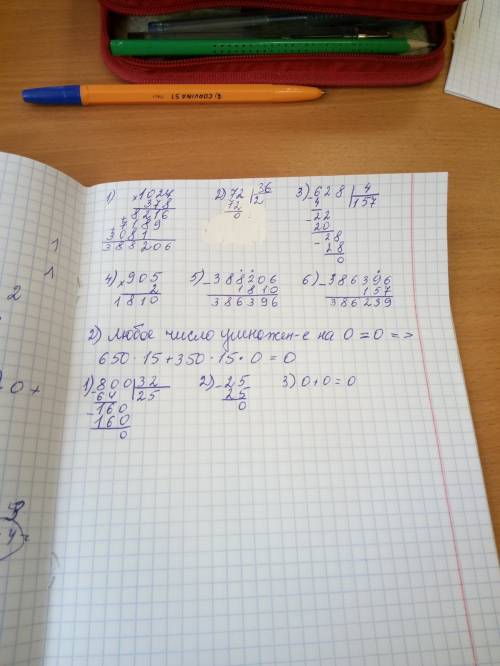 CORVINA 51
1) ×1024 2) 72 |36 3) -628 |4
378 72 2 4 157
+8216 0 -22
+7189 20
3081 -28
388206 28
0
4) ×905 5) -388206 6) -386396
2 1810 157
1810 386396 386239
2) Любое число умножен-е на 0 = 0 =>
650 · 15 + 350 · 15 · 0 = 0
1) -800 |32 2) -25 3) 0 + 0 = 0
64 25 25
-160 0
160
0
1
1
2
0 +